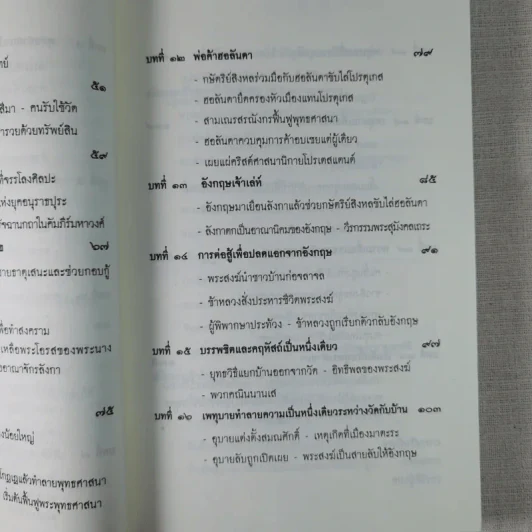 ย์
๕๑
สีมา - คนรับใช้วัด
ารวยด้วยทรัพย์สิน
๕๙
ที่จรรโลงศิลปะ
ห่งยุคอนุราชปุระ
ัจฉานกถาในคัมภีร์มหาวงศ์
๖๗
ายธาตุเสนะและช่วยกอบกู้
พื่อทำสงคราม
เหลือพระโอรสของพระนาง
องอาณาจักรลังกา
๗๕
งน้อยใหญ่
โกฏฺเฏแล้วทำลายพุทธศาสนา
เริ่มต้นฟื้นฟูพระพุทธศาสนา
บทที่ ๑๒ พ่อค้าฮอลันดา ๗๙
- กษัตริย์สิงหลร่วมมือกับฮอลันดาขับไล่โปรตุเกส
- ฮอลันดายึดครองหัวเมืองแทนโปรตุเกส
- สามเณรสรณังกรฟื้นฟูพุทธศาสนา
- ฮอลันดาควบคุมการค้าอบเชยแต่ผู้เดียว
- เผยแผ่คริสต์ศาสนานิกายโปรเตสแตนต์
บทที่ ๑๓ อังกฤษเจ้าเล่ห์ ๘๕
- อังกฤษมาเยือนลังกาแล้วช่วยกษัตริย์สิงหลขับไล่ฮอลันดา
- ลังกาตกเป็นอาณานิคมของอังกฤษ - วีรกรรมพระสุมังคลเถระ
บทที่ ๑๔ การต่อสู้เพื่อปลดแอกจากอังกฤษ ๙๑
- พระสงฆ์นำชาวบ้านก่อจลาจล
- ข้าหลวงสั่งประหารชีวิตพระสงฆ์
- ผู้พิพากษาประท้วง - ข้าหลวงถูกเรียกตัวกลับอังกฤษ
บทที่ ๑๕ บรรพชิตและคฤหัสถ์เป็นหนึ่งเดียว ๙๗
- ยุทธวิธีแยกบ้านออกจากวัด - อิทธิพลของพระสงฆ์
- พวกคณินนานเส
บทที่ ๑๖ เพทุบายทำลายความเป็นหนึ่งเดียวระหว่างวัดกับบ้าน ๑๐๓
- อุบายแต่งตั้งสมณศักดิ์ - เหตุเกิดที่เมืองมาตะระ
- อุบายลับถูกเปิดเผย - พระสงฆ์เป็นสายลับให้อังกฤษ